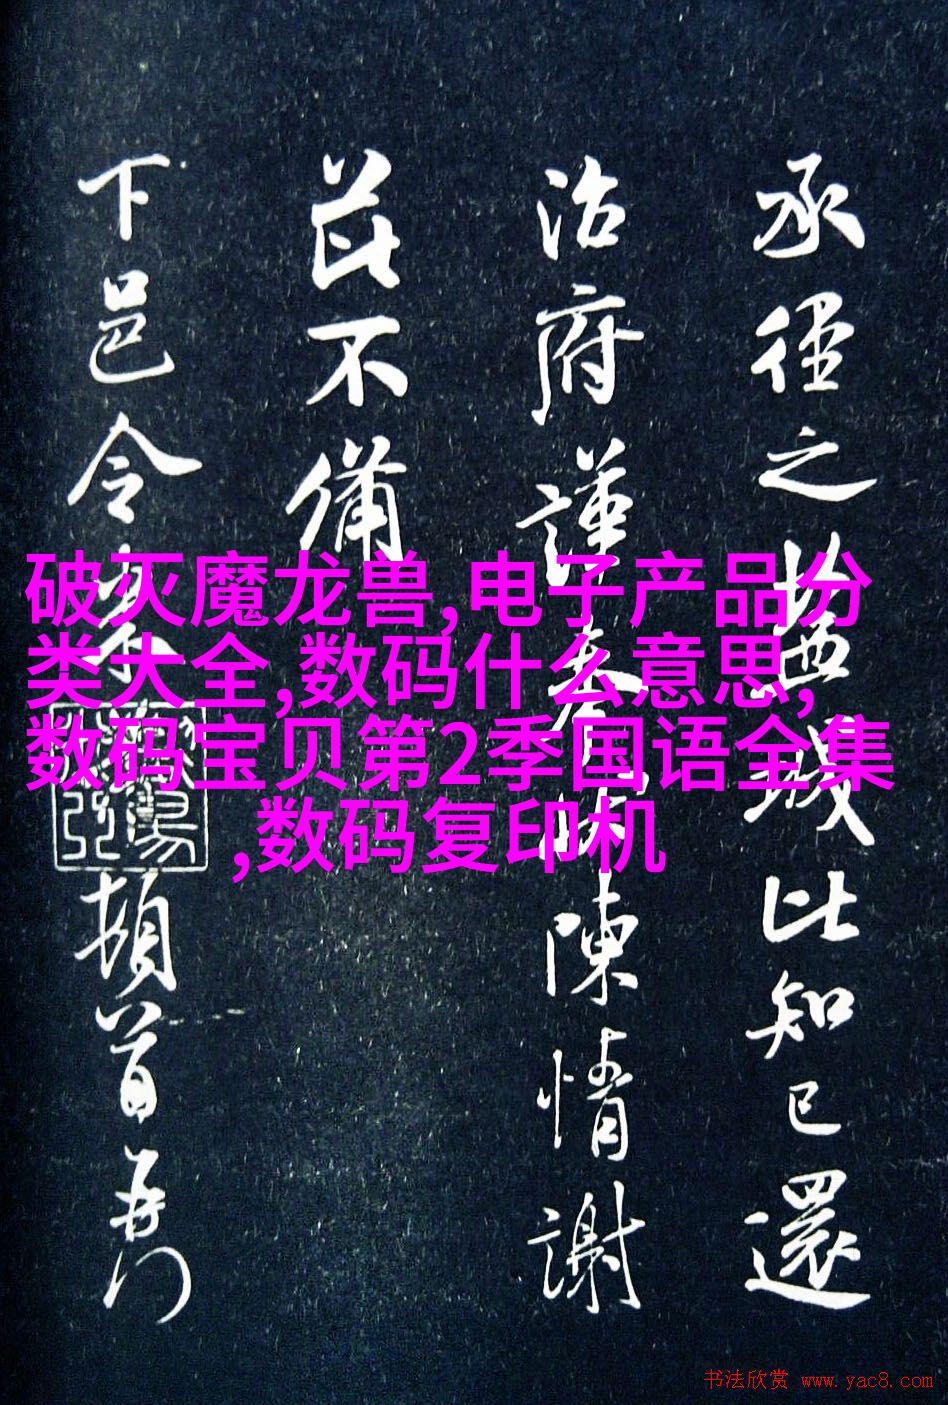 承徑之城比知已還
治府謹奉陳情謝
茲不備
下邑令頓首再
破灭魔龙兽,电子产品分
类大全,数码什么意思,
数码宝贝第2季国语全集
,数码复印机
书法欣赏 www.yac8.com